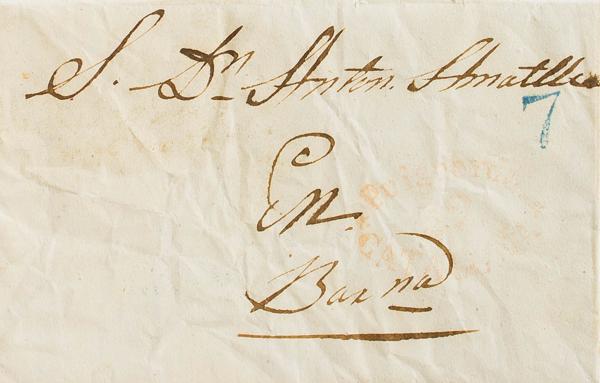 S. Dn Anton Amatller
7
En
Barna